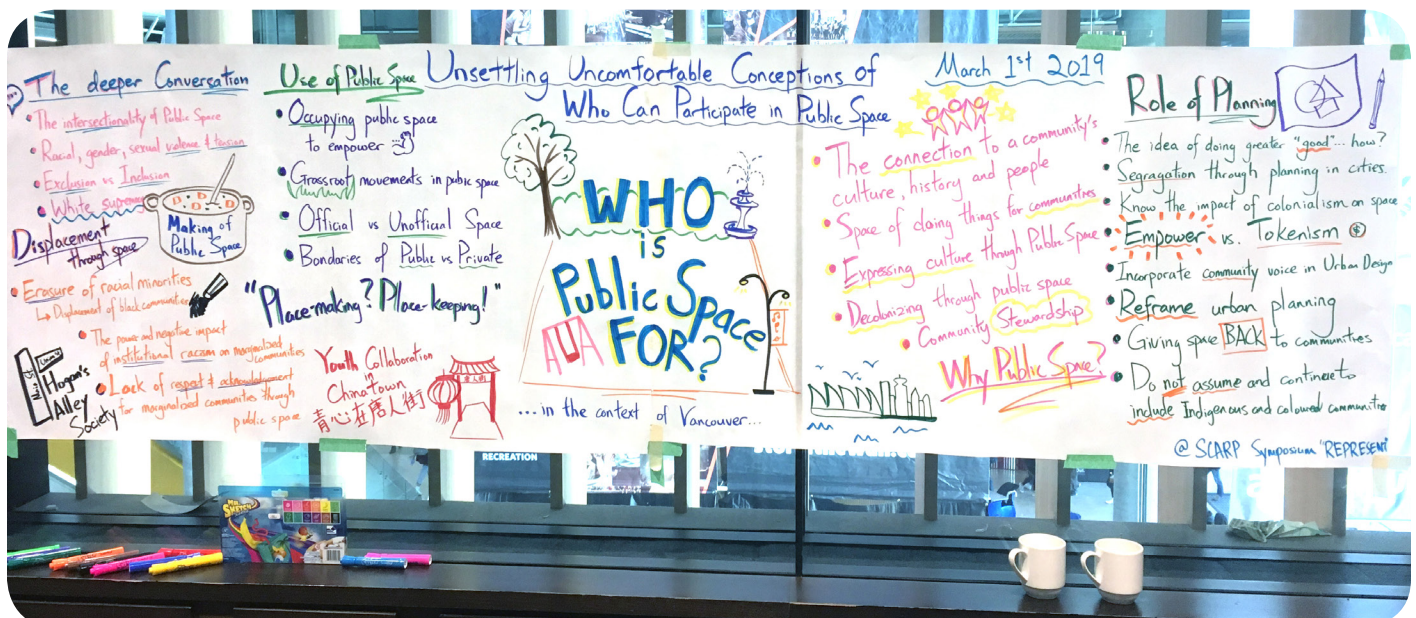 The deeper Conversation
• The intersectionality of Public Space
• Racial, gender, sexual violence & tension
• Exclusion vs Inclusion
• White suprema
Making of
Public Space
Displacement
through space
• Erasure of racial minorities
↳ Displacement of black communities
• The power and negative impact
of institutional racism on marginalized
communities
• Lack of respect & acknowledgement
for marginalized communities through
public space
Hogan's
Alley
Society
Use of Public Space
• Occupying public space
to empower
• Grassroot movements in public space
• Official vs Unofficial Space
• Bondaries of Public vs Private
"Place-making? Place-keeping!"
Youth Collaboration
in
Chinatown
青心在唐人街
Unsettling Uncomfortable Conceptions of
Who Can Participate in Public Space
WHO
is
Public Space
FOR?
...in the context of Vancouver...
March 1st 2019
• The connection to a community's
culture, history and people
• Space of doing things for communities
• Expressing culture through Public Space
• Decolonizing through public space
• Community Stewardship
Why Public Space?
Role of Planning
• The idea of doing greater "good"... how?
• Segragation through planning in cities.
• Know the impact of colonialism on space
• Empower vs. Tokenism $
• Incorporate community voice in Urban Design
• Reframe urban planning
• Giving space BACK to communities
• Do not assume and continue to
include Indigenous and coloured communities
@ SCARP Symposium "REPRESENT"
RECREATION
MR. SKETCH